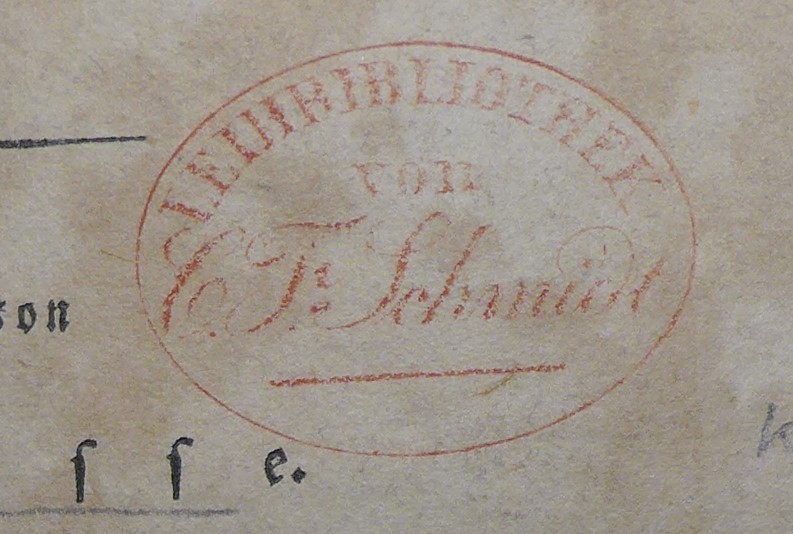 LEIHBIBLIOTHEK
von
C. F. Schmidt
son
ſ ſ e.